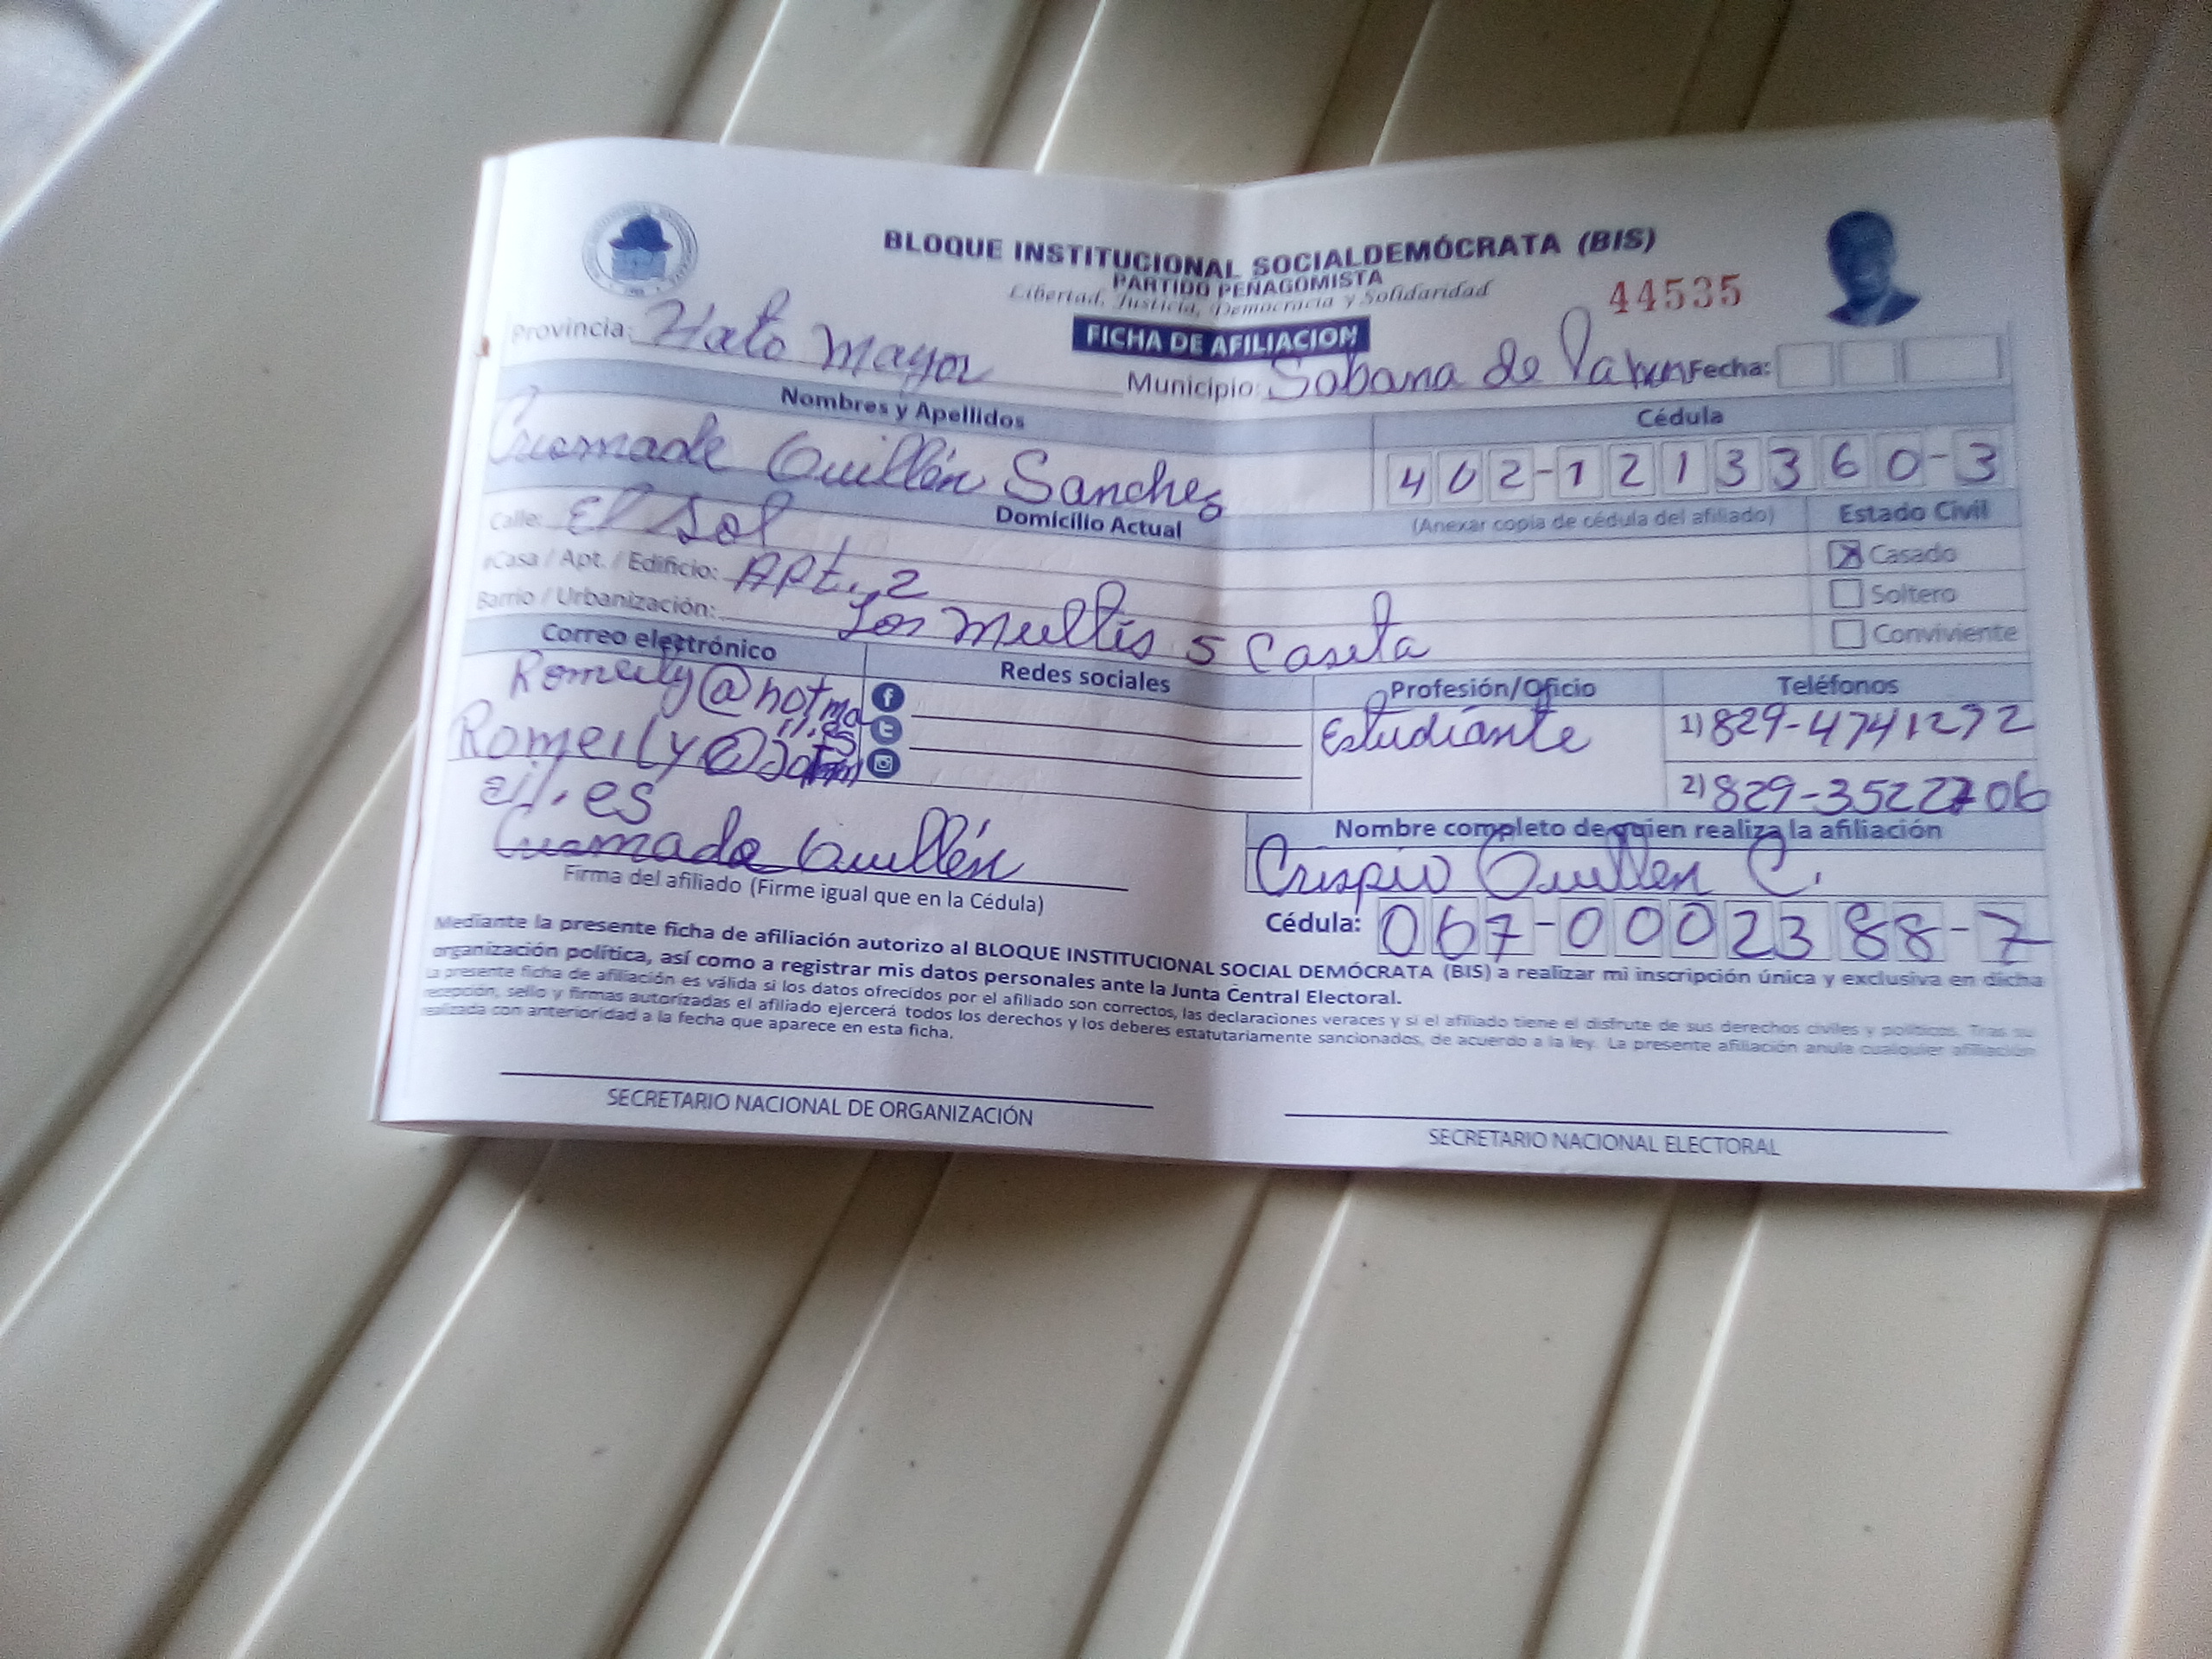 BLOQUE INSTITUCIONAL SOCIALDEMÓCRATA (BIS)
PARTIDO PEÑAGOMISTA
Libertad, Justicia, Democracia y Solidaridad
44535
FICHA DE AFILIACION
Provincia: Hato Mayor Municipio: Sabana de Fecha:
Nombres y Apellidos Cédula
Guillén Sanchez 402-1213360-3
Domicilio Actual (Anexar copia de cédula del afiliado) Estado Civil
Calle: El Sol
Casado
#Casa / Apt. / Edificio: Apt. 2
Soltero
Barrio / Urbanización: Los Multis 5 Caseta
Conviviente
Correo electrónico Redes sociales Profesión/Oficio Teléfonos
Romeily@hotma
il.es
Estudiante 1) 829-4741272
Romeily@
ail.es
2) 829-3522706
Guillén
Firma del afiliado (Firme igual que en la Cédula)
Nombre completo de quien realiza la afiliación
Guillen C.
Cédula: 067-0002388-7
Mediante la presente ficha de afiliación autorizo al BLOQUE INSTITUCIONAL SOCIAL DEMÓCRATA (BIS) a realizar mi inscripción única y exclusiva en dicha
organización política, así como a registrar mis datos personales ante la Junta Central Electoral.
La presente ficha de afiliación es válida si los datos ofrecidos por el afiliado son correctos, las declaraciones veraces y si el afiliado tiene el disfrute de sus derechos civiles y políticos. Tras su
recepción, sello y firmas autorizadas el afiliado ejercerá todos los derechos y los deberes estatutariamente sancionados, de acuerdo a la ley. La presente afiliación anula cualquier afiliación
realizada con anterioridad a la fecha que aparece en esta ficha.
SECRETARIO NACIONAL DE ORGANIZACIÓN
SECRETARIO NACIONAL ELECTORAL